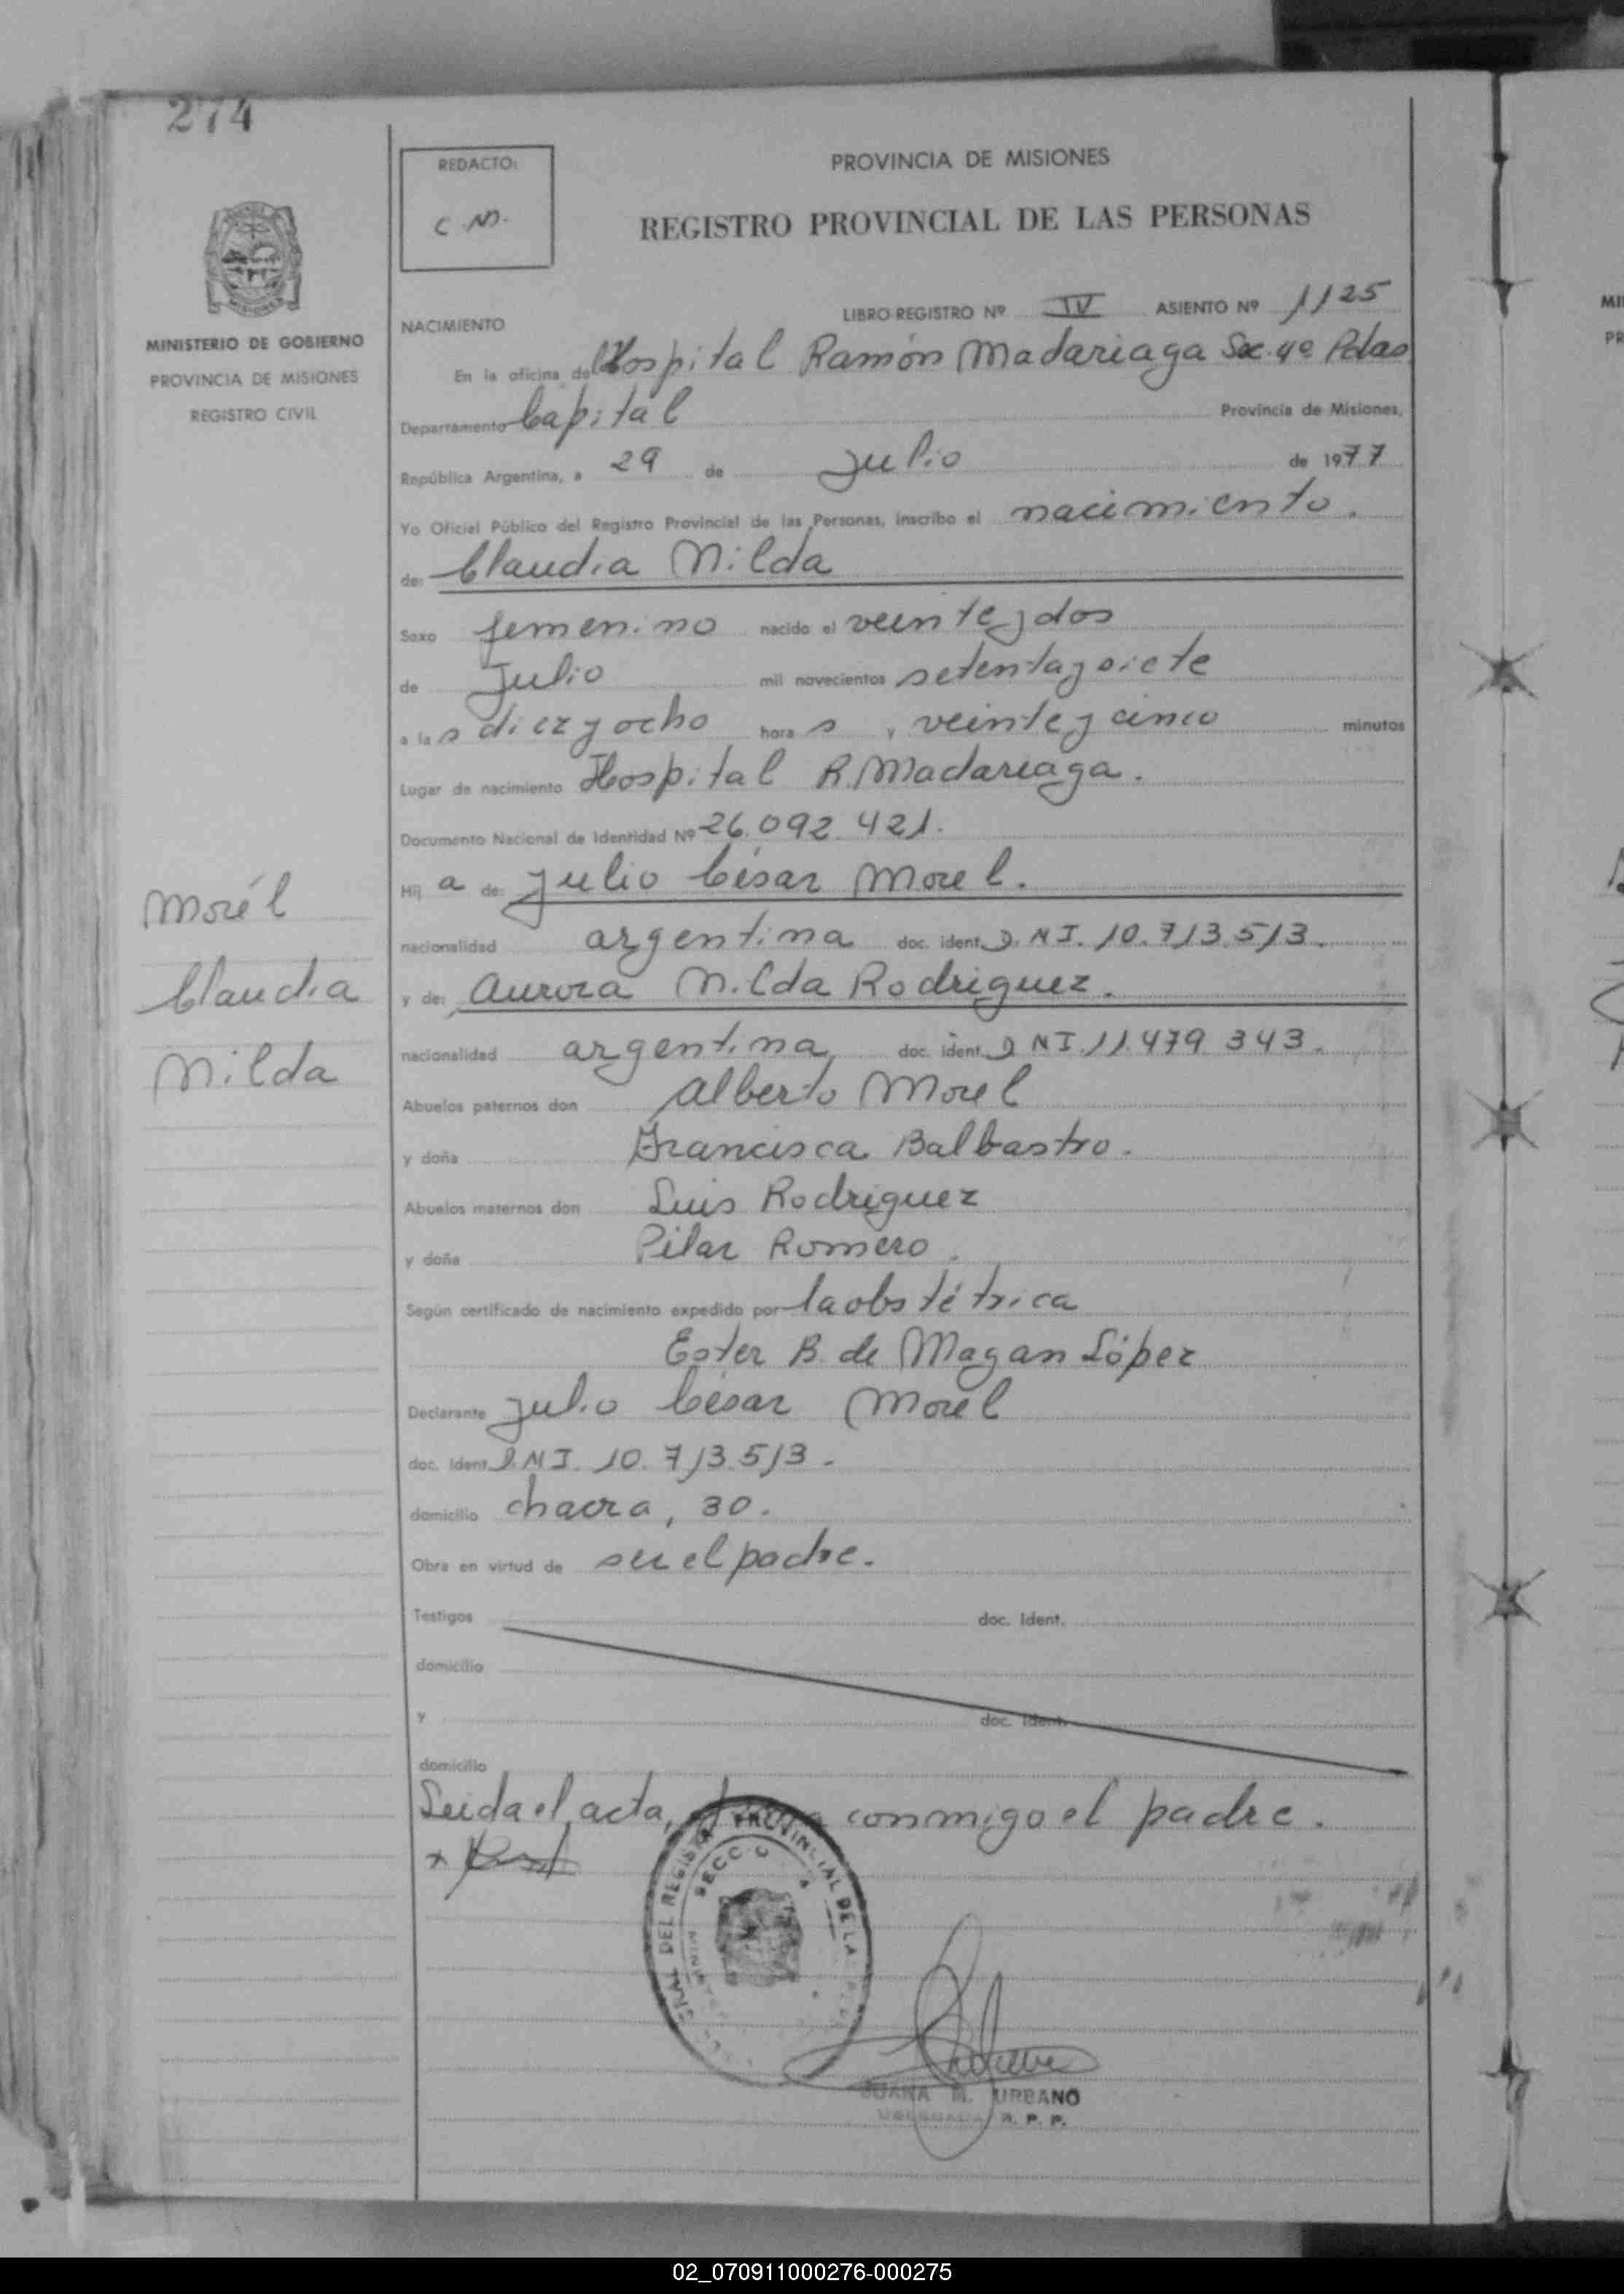 274
REDACTO:
C.N.
PROVINCIA DE MISIONES
REGISTRO PROVINCIAL DE LAS PERSONAS
MINISTERIO DE GOBIERNO
PROVINCIA DE MISIONES
REGISTRO CIVIL
LIBRO-REGISTRO Nº IV ASIENTO Nº 1125
NACIMIENTO
En la oficina del Hospital Ramón Madariaga Sec. 4º Pdas
Departamento Capital Provincia de Misiones,
República Argentina, a 29 de Julio de 1977
Yo Oficial Público del Registro Provincial de las Personas, inscribo el nacimiento.
de: Claudia Nilda
Sexo femenino nacido el veinte y dos
de Julio mil novecientos setenta y siete
a las diez y ocho horas y veinte y cinco minutos
Lugar de nacimiento Hospital R. Madariaga.
Documento Nacional de Identidad Nº 26.092.421.
Hija de: Julio César Morel.
nacionalidad argentina doc. ident. D.N.I. 10.713.513.
y de: Aurora Nilda Rodriguez.
nacionalidad argentina doc. ident. D N I. 11.479.343.
Morél
Claudia
Nilda
Abuelos paternos don Alberto Morel
y doña Francisca Balbastro.
Abuelos maternos don Luis Rodriguez
y doña Pilar Romero.
Según certificado de nacimiento expedido por la obstétrica
Ester B. de Magan López
Declarante Julio César Morel
doc. Ident. D.N.I. 10.713.513.
domicilio chacra, 30.
Obra en virtud de ser el padre.
Testigos doc. Ident.
domicilio
y doc. Ident.
domicilio
Leida el acta, conmigo el padre.
DEL REGISTRO PROVINCIAL DE LA
SECC
JUANA M. URBANO
DELEGADA R. P. P.
02_070911000276-000275